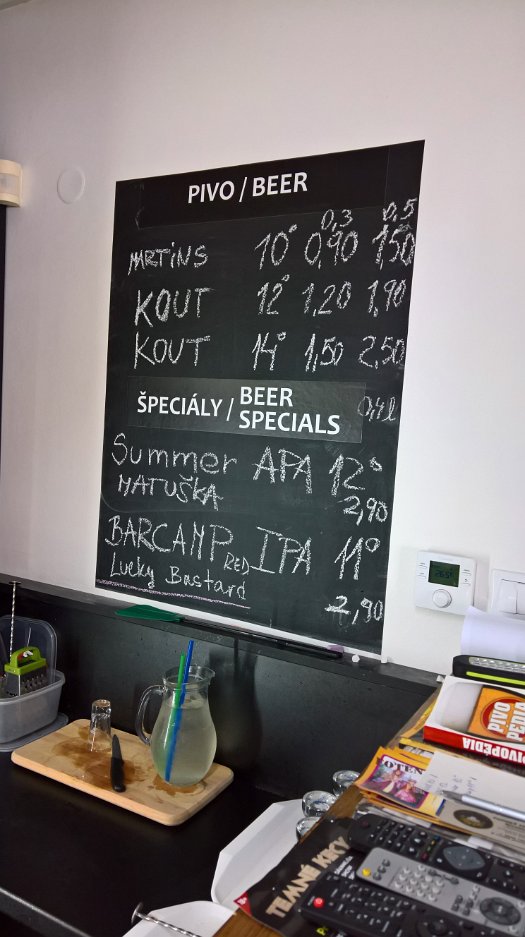 PIVO / BEER
0,3 0,5
MARTiNS 10° 0,90 1,50
KOUT 12° 1,20 1,90
KOUT 14° 1,50 2,50
ŠPECIÁLY / BEER SPECIALS 0,4l
Summer APA 12°
MATUŠKA 2,90
BARCAMP RED IPA 11°
Lucky Bastard 2,90
PIVO
PEDIA
PIVOPÉDIA
TEMNÉ KRY